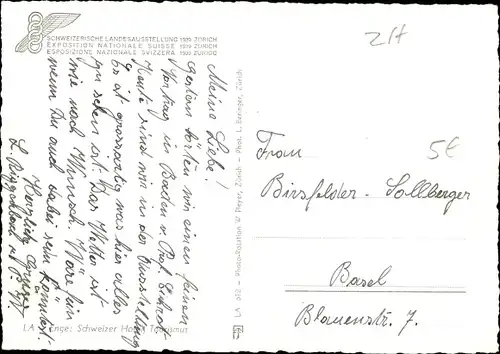 SCHWEIZERISCHE LANDESAUSSTELLUNG 1939 ZÜRICH
EXPOSITION NATIONALE SUISSE 1939 ZÜRICH
ESPOSIZIONE NAZIONALE SVIZZERA 1939 ZÜRIGO
Meine Liebe!
Gestern hörten wir einen feinen
Vortrag in Baden v. Prof.
Heute sind wir in der Ausstellung
Es ist grossartig was hier alles
zu sehen ist. Das Wetter ist
wie nach Wunsch. Wäre fein
wenn Du auch dabei sein könntest.
Herzliche Grüsse
LA Klänge: Schweizer Hotel Tourismus
LA 812 - Photo-Rotation W Pleyer, Zürich - Phot. L. Beringer, Zürich
ZH
5€
Frau
Birsfelder-Sollberger
Basel
Blauenstr. 7.